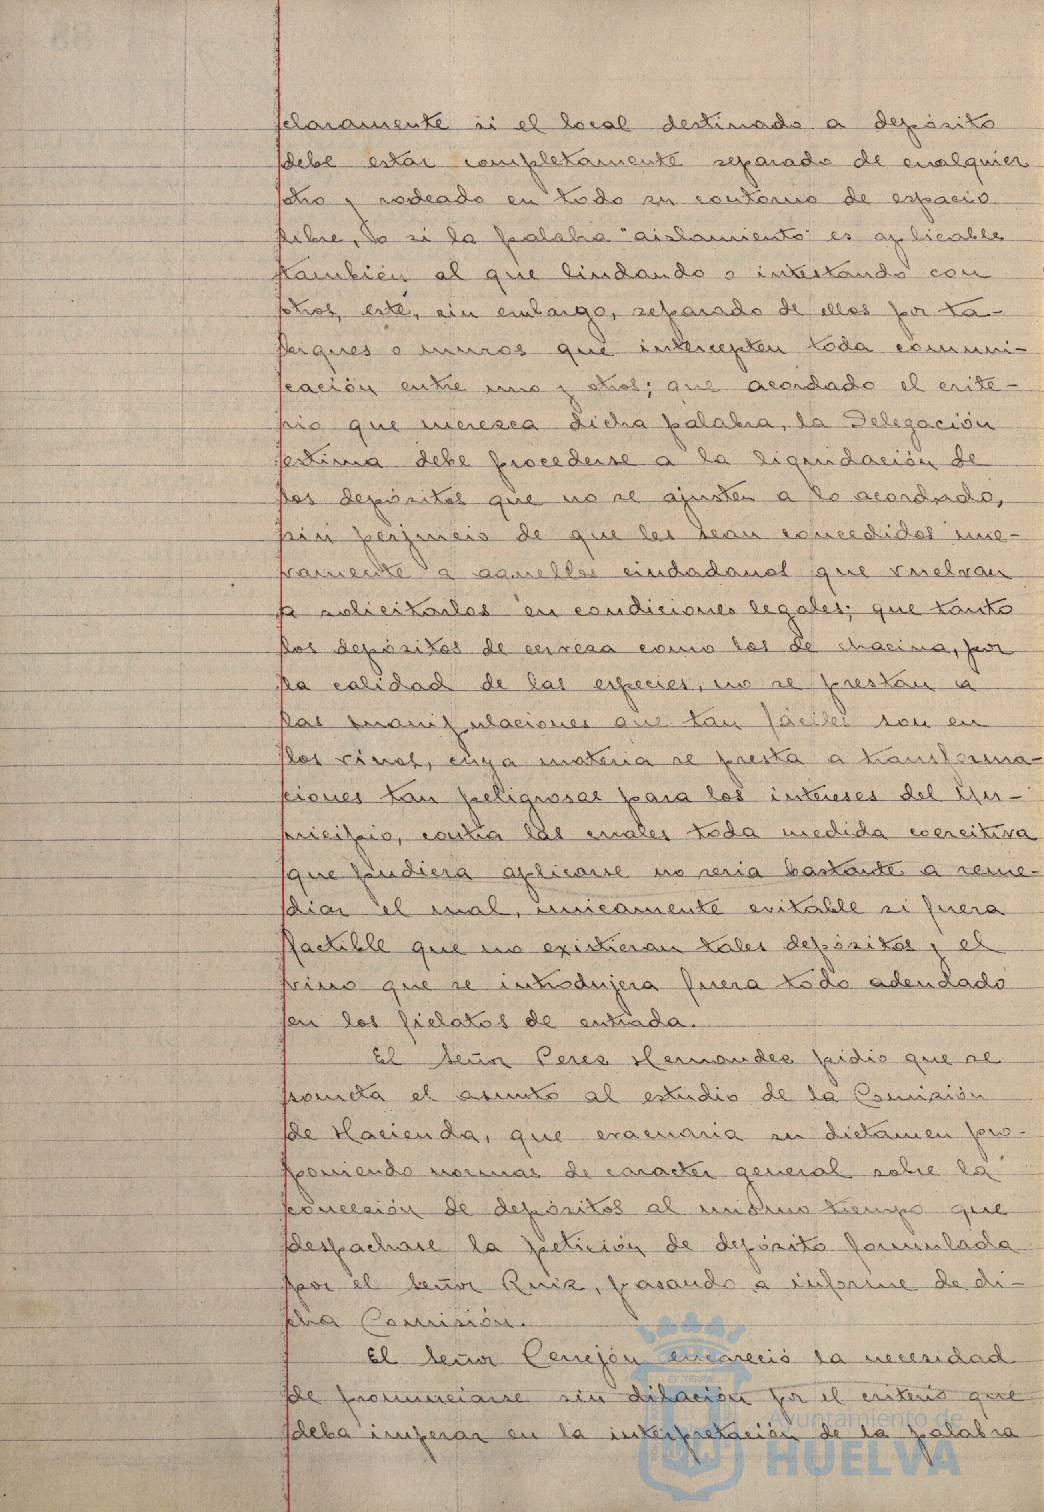 claramente si el local destinado a depósito
debe estar completamente separado de cualquier
otro y rodeado en todo su contorno de espacio
libre, o si la palabra "aislamiento" es aplicable
también al que lindando o intestando con
otros, esté, sin embargo, separado de ellos por ta-
biques o muros que intercepten toda comuni-
cación entre uno y otros; que acordado el crite-
rio que merezca dicha palabra, la Delegación
estima debe procederse a la liquidación de
los depósitos que no se ajusten a lo acordado,
sin perjuicio de que les sean concedidos nue-
vamente a aquellos ciudadanos que vuelvan
a solicitarlos en condiciones legales; que tanto
los depósitos de cerveza como los de chacina, por
la calidad de las especies, no se prestan a
las manipulaciones que tan fáciles son en
los vinos, cuya materia se presta a transforma-
ciones tan peligrosas para los intereses del Mu-
nicipio, contra las cuales toda medida coercitiva
que pudiera aplicarse no seria bastante a reme-
diar el mal, unicamente evitable si fuera
factible que no existieran tales depósitos y el
vino que se introdujera fuera todo adeudado
en los fielatos de entrada.
El Señor Perez Hernandez pidio que se
someta el asunto al estudio de la Comisión
de Hacienda, que evacuaria su dictamen pro-
poniendo normas de caracter general sobre la
concesión de depósitos al mismo tiempo que
despachase la petición de depósito formulada
por el Señor Ruiz, pasando a informe de di-
cha Comisión.
El Señor Cerrejón encareció la necesidad
de pronunciarse sin dilación por el criterio que
deba imperar en la interpretación de la palabra
Ayuntamiento de
HUELVA